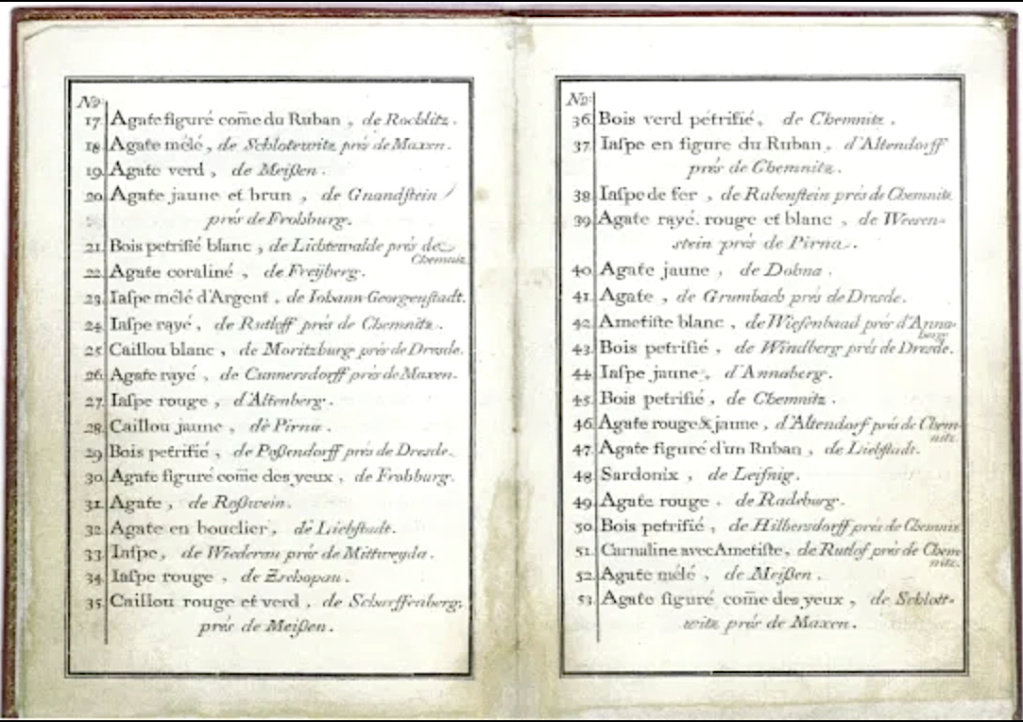 No:
17. Agate figuré com̃e du Ruban, de Rochlitz.
18. Agate mêlé, de Schlotewitz prés de Maxen.
19. Agate verd, de Meißen.
20. Agate jaune et brun, de Gnandſtein
prés de Frohburg.
21. Bois petrifié blanc, de Lichtewalde prés de
Chemnitz.
22. Agate coraliné, de Freÿberg.
23. Iaſpe mêlé d'Argent, de Iohann-Georgenſtadt.
24. Iaſpe rayé, de Rutloff prés de Chemnitz.
25. Caillou blanc, de Moritzburg prés de Dresde.
26. Agate rayé, de Cunnersdorff prés de Maxen.
27. Iaſpe rouge, d'Altenberg.
28. Caillou jaune, de Pirna.
29. Bois petrifié, de Poßendorff prés de Dresde.
30. Agate figuré com̃e des yeux, de Frohburg.
31. Agate, de Roßwein.
32. Agate en bouclier, de Liebſtadt.
33. Iaſpe, de Wiederau prés de Mittweyda.
34. Iaſpe rouge, de Zschopau.
35. Caillou rouge et verd, de Scharffenberg,
prés de Meißen.
No:
36. Bois verd petrifié, de Chemnitz.
37. Iaſpe en figure du Ruban, d'Altendorff
prés de Chemnitz.
38. Iaſpe de fer, de Rabenſtein prés de Chemnitz
39. Agate rayé rouge et blanc, de Weesen-
stein prés de Pirna.
40. Agate jaune, de Dohna.
41. Agate, de Grumbach prés de Dresde.
42. Ametiſte blanc, de Wieſenbaad prés d'Anna-
berg.
43. Bois petrifié, de Windberg prés de Dresde.
44. Iaſpe jaune, d'Annaberg.
45. Bois petrifié, de Chemnitz.
46. Agate rouge & jaune, d'Altendorf prés de Chem-
nitz.
47. Agate figuré d'un Ruban, de Liebſtadt.
48. Sardonix, de Leiſnig.
49. Agate rouge, de Radeburg.
50. Bois petrifié, de Hilbersdorff prés de Chemnitz
51. Carnaline avec Ametiſte, de Rutlof prés de Chem-
nitz.
52. Agate mêlé, de Meißen.
53. Agate figuré com̃e des yeux, de Schlott-
witz prés de Maxen.